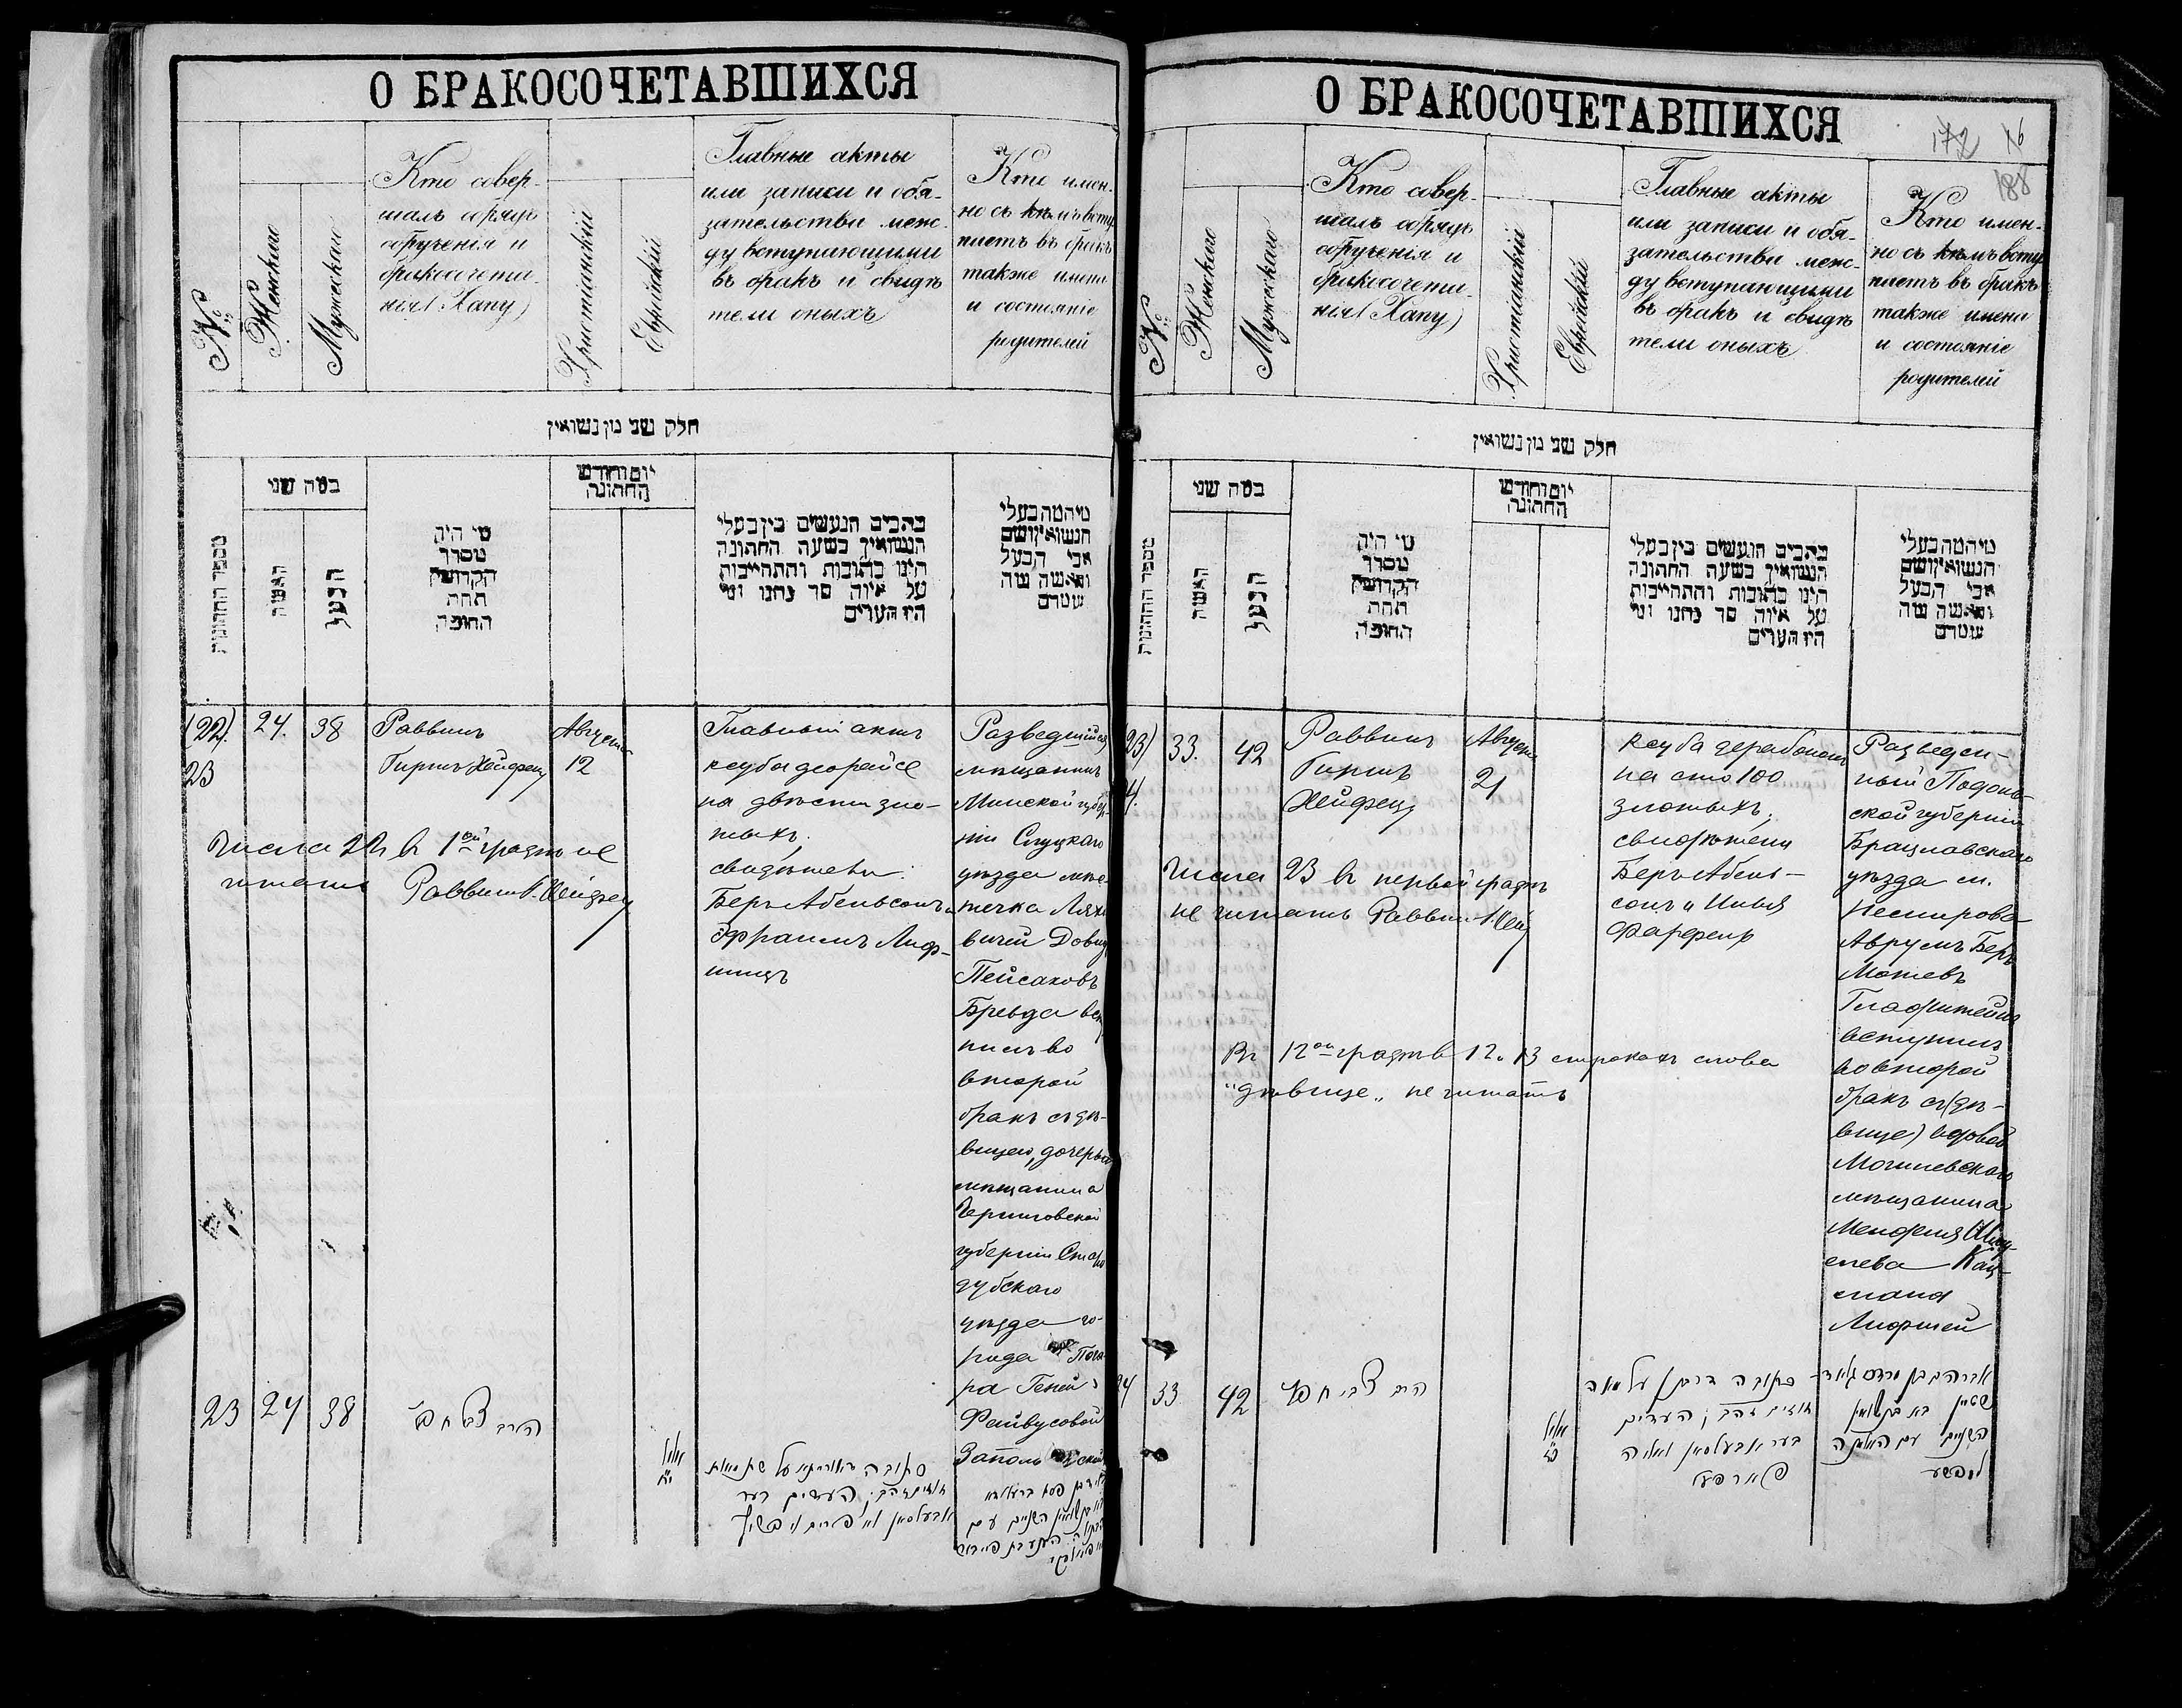 О БРАКОСОЧЕТАВШИХСЯ
№
Женскаго
Мужескаго
Кто совер-
шалъ обрядъ
обрученія и
бракосочета-
нія (Хапу)
Христіанскій
Еврейскій
Главные акты
или записи и обя-
зательства меж-
ду вступающими
въ бракъ и свидѣ
тели оныхъ
Кто имен-
но съ кѣмъ всту
паетъ въ бракъ
также имена
и состояніе
родителей
חלק שני מן נשואין
מספר החתונות
כמה שני
האשה
הבעל
מי היה
מסדר
הקדושין
תחת
החופה
יום וחודש
החתונה
כתבים הנעשים בין בעלי
הנשואין בשעה החתונה
היינו כתובות והתחייבות
על איזה סך נתנו ומי
היו העדים
מי המה בעלי
הנשואין ושם
אבי הבעל
והאשה ומה
שמם
(22).
23
24.
38
Раввинъ
Гиршъ Хейфецъ
Августа
12
Главный актъ
ксуба деорайсе
на двѣсти зло-
тыхъ;
свидѣтели:
Беръ Абельсонъ и
Эфраимъ Лиф-
шицъ
Разведшійся
мѣщанинъ
Минской губер-
ніи Слуцкаго
уѣзда мѣс-
течка Ляхо
вичей Довид
Пейсаховъ
Бревда всту
пилъ во
второй
бракъ съ дѣ-
вицею, дочерью
мѣщанина
Черниговской
губерніи Старо
дубскаго
уѣзда го-
рода Пога-
ра Геней
Файвусовой
Заполь ской
Числа 22 въ 1ой графѣ не
читать Раввинъ Г. Хейфец
23
24
38
הרב צבי חפץ
כתובה דאורייתא על שתי מאות
זהב; העדים בער
אבעלסאן
О БРАКОСОЧЕТАВШИХСЯ
172
16
188
№
Женскаго
Мужескаго
Кто совер-
шалъ обрядъ
обрученія и
бракосочета-
нія (Хапу)
Христіанскій
Еврейскій
Главные акты
или записи и обя-
зательства меж-
ду вступающими
въ бракъ и свидѣ
тели оныхъ
Кто имен-
но съ кѣмъ всту
паетъ въ бракъ
также имена
и состояніе
родителей
חלק שני מן נשואין
מספר החתונות
כמה שני
האשה
הבעל
מי היה
מסדר
הקדושין
תחת
החופה
יום וחודש
החתונה
כתבים הנעשים בין בעלי
הנשואין בשעה החתונה
היינו כתובות והתחייבות
על איזה סך נתנו ומי
היו העדים
מי המה בעלי
הנשואין ושם
אבי הבעל
והאשה ומה
שמם
23)
4.
33.
42
Раввинъ
Гиршъ
Хейфецъ
Августа
21
ксуба дерабонон
на сто 100
злотыхъ;
свидѣтели
Беръ Абель-
сонъ и Илья
Фарферъ
Разведен-
ный Подоль-
ской губерніи
Брацлавскаго
уѣзда м.
Немирова
Аврумъ Беръ
Мотевъ
Гладштейнъ
вступилъ
во второй
бракъ съ (дѣ-
вице) вдовой
Могилевскаго
мѣщанина
Менделя
елева Кац-
мана
Лифшей
Числа 23 въ первой графѣ
не читать Раввинъ Г. Хей
Въ 12ой графѣ въ 12 и 13 строкахъ слова
"дѣвице" не читать
24
33
42
הרב צבי חפץ
כתובה דרבנן על מאה
זהב; העדים
בער אבעלסאן ואליה
פארפער
השניים עם האלמנה
ליפשע